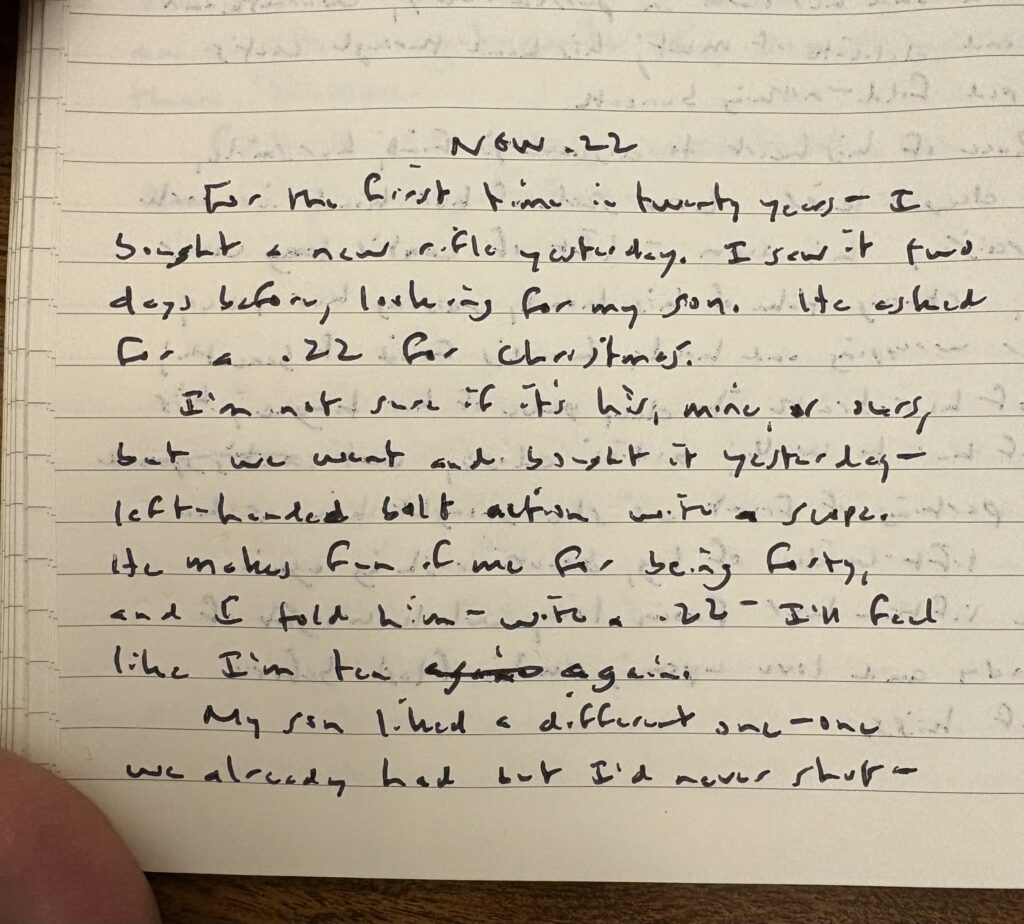 NEW .22
For the first time in twenty years – I
bought a new rifle yesterday. I saw it two
days before, looking for my son. He asked
for a .22 for Christmas.
I'm not sure if it's his, mine, or ours,
but we went and bought it yesterday –
left-handed bolt action with a scope.
He makes fun of me for being forty,
and I told him – with a .22 – I'll feel
like I'm ten again again.
My son liked a different one – one
we already had but I'd never shot –